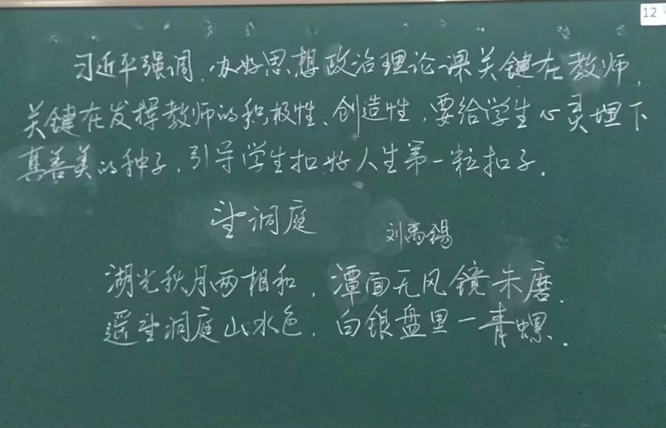 12
习近平强调,办好思想政治理论课关键在教师,
关键在发挥教师的积极性、创造性,要给学生心灵埋下
真善美的种子,引导学生扣好人生第一粒扣子.
望洞庭 刘禹锡
湖光秋月两相和,潭面无风镜未磨.
遥望洞庭山水色,白银盘里一青螺.